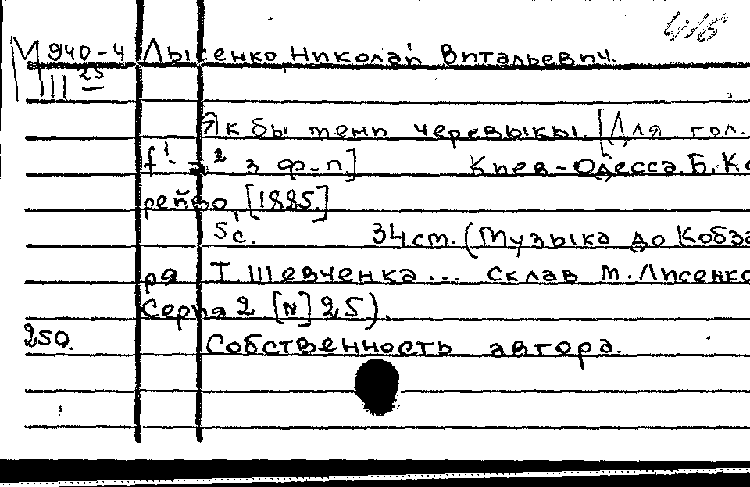 М 940-4 Лысенко, Николай Витальевич.
III 25
Якбы мени черевыкы. [Для гол.
f¹ - 2 з ф-п] Киев-Одесса. Б. Ко
рейво, [1885.]
5с. 34 ст. (Музыка до Кобза
ря Т. Шевченка... склав М. Лисенко
Серия 2 [N] 25).
250. Собственность автора.